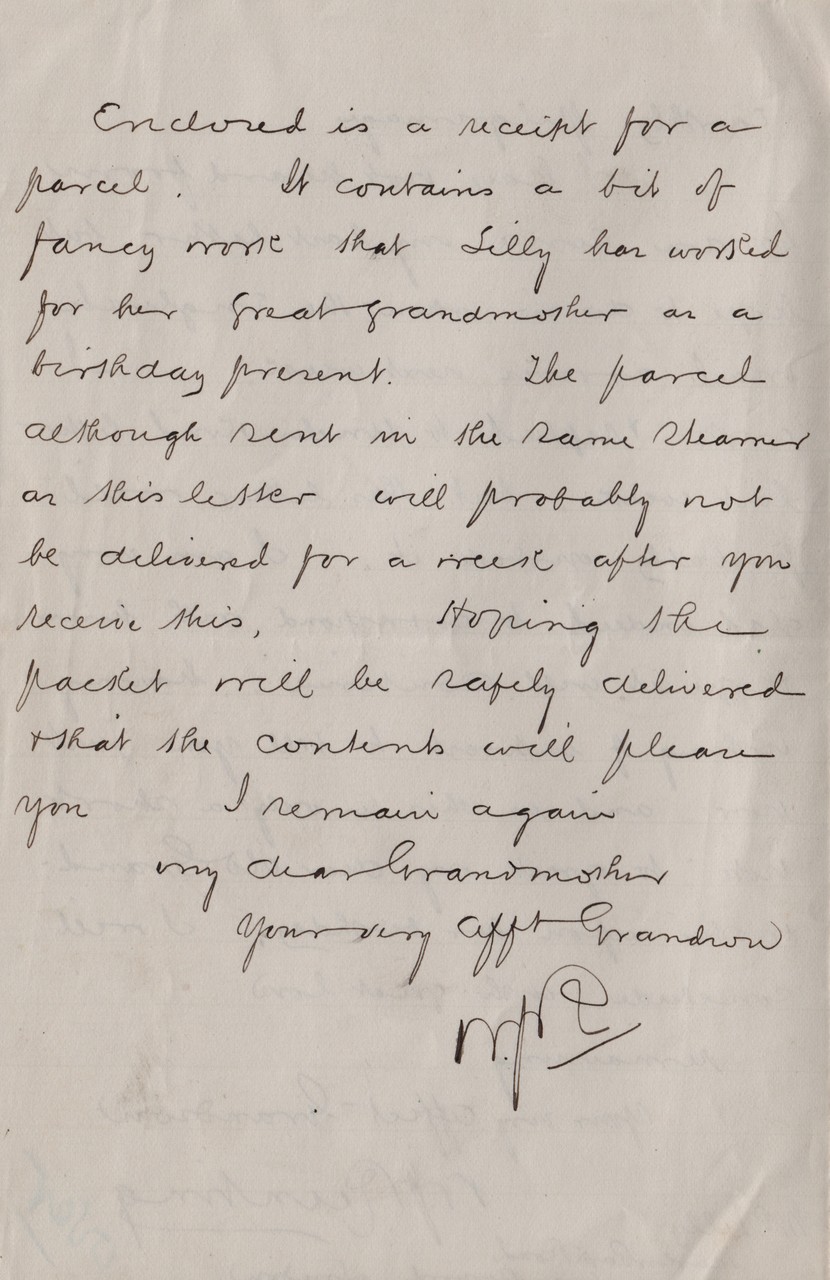 Enclosed is a receipt for a
parcel. It contains a bit of
fancy work that Lilly has worked
for her Great grandmother as a
birthday present. The parcel
although sent in the same Steamer
as this letter will probably not
be delivered for a week after you
receive this, Hoping the
packet will be safely delivered
& that the contents will please
you I remain again
my dear Grandmother
Your very afft Grandson